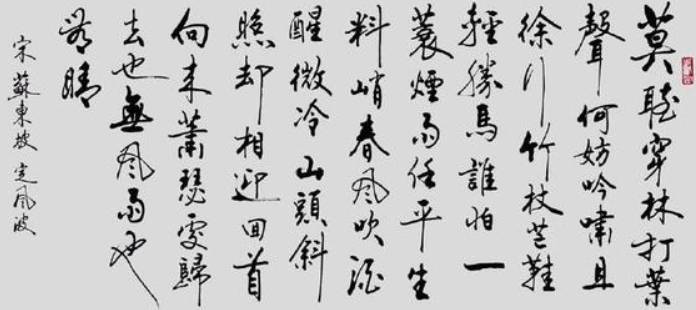 莫聽穿林打葉
聲何妨吟嘯且
徐行竹杖芒鞋
輕勝馬誰怕一
蓑煙雨任平生
料峭春风吹酒
醒微冷山頭斜
照却相迎回首
向来蕭瑟處歸
去也無风雨也
無晴
宋蘇東坡定风波